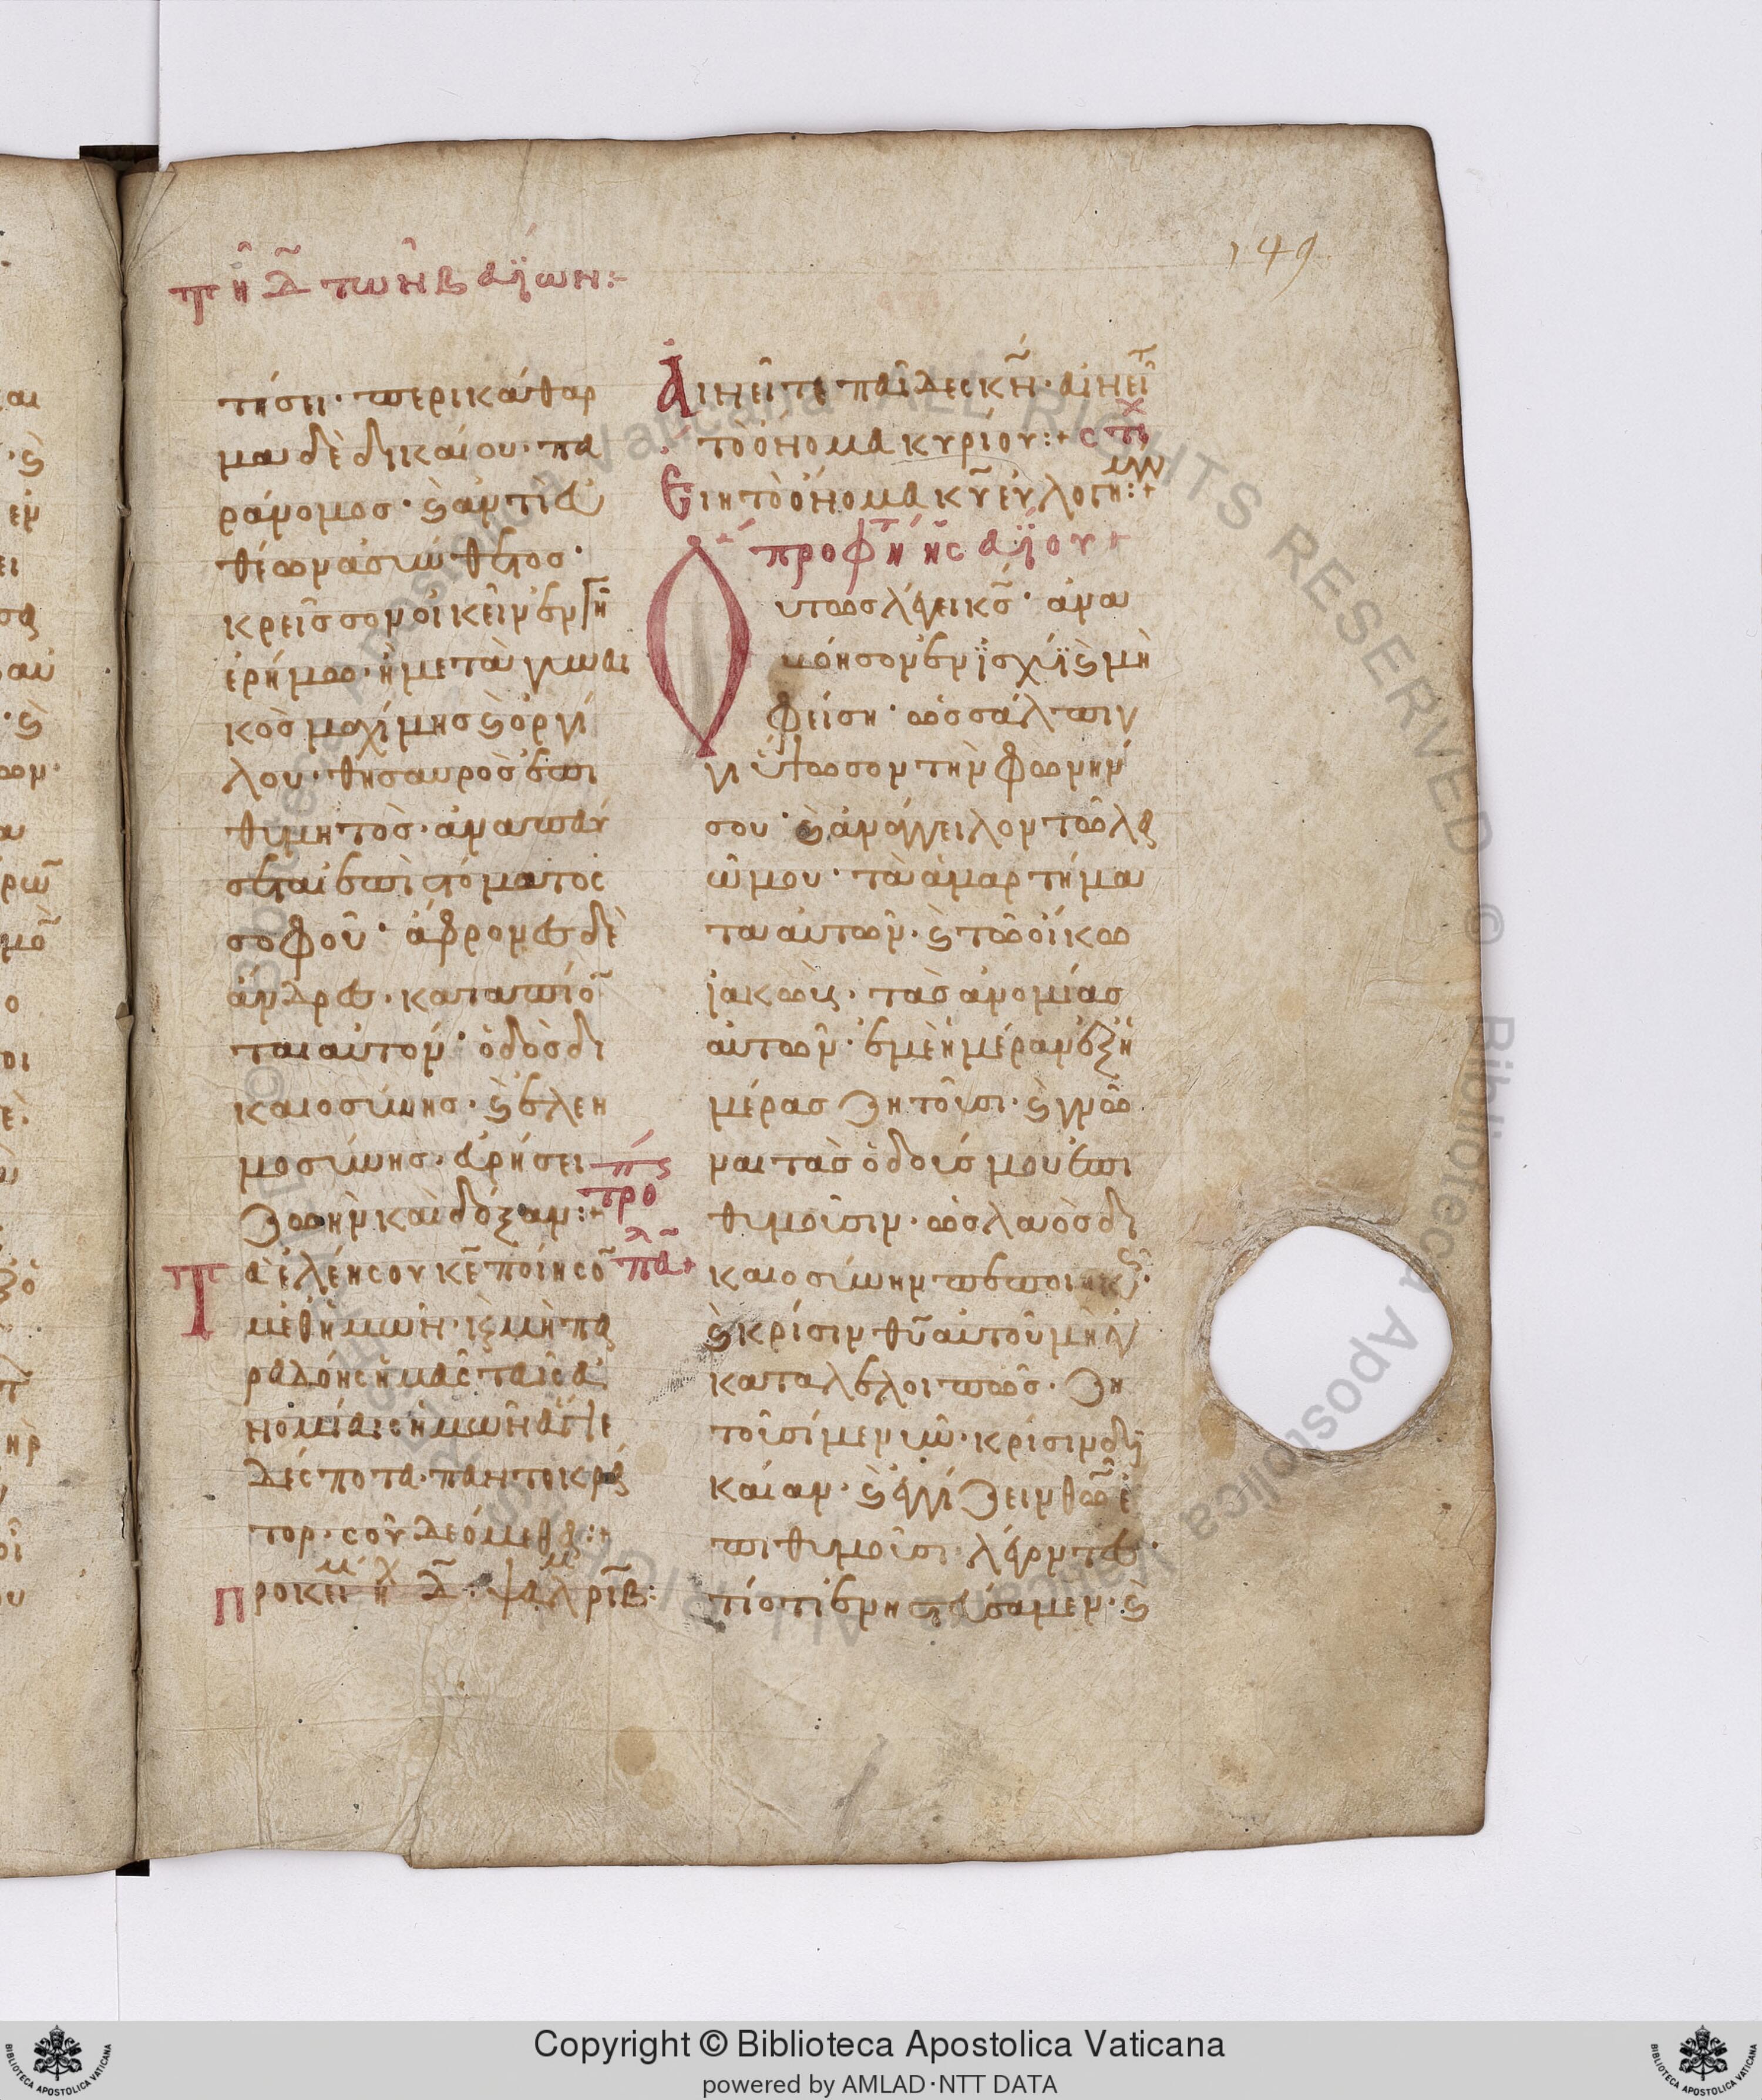 τῆ δ̃ τῶν β ἁγίων:-
149
τήσει· περικάθαρ
μα δὲ δικαίου· πα
ράνομος· ϗ ἀντὶ εὐ
θέων ἀσύνθετος·
κρεῖσσον οἰκεῖν ἐν γῆ
ἐρήμω· ἢ μετὰ γυναι
κὸς μαχίμης ϗ ὀργί
λου· θησαυρὸς ἐπι
θυμητὸς· ἀναπαύ
σεται ἐπὶ στόματος
σοφοῦ· ἄφρονες δὲ
ἄνδρες· καταπίο͂
ται αὐτόν· ὁδὸς δι
καιοσύνης· ϗ ἐλεη
μοσύνης· εὑρήσει
ζωὴν καὶ δόξαν:+
προ
Τὰ ἐλέη σου κε̃ ποίησο͂
μεθ' ἡμῶν· ϗ μὴ πα
ραδώης ἡμᾶς ταῖς ἀ
νομίαις ἡμῶν ἅγιε
δέσποτα· παντοκρά
τορ· σοῦ δεόμεθα:+
Προκει ἠχ δ̃· ψαλμ ριβ:
Αἰνεῖτε παῖδες κν̃· αἰνεῖτ
τὸ ὄνομα κυρίου:+ στιχ
Εἴη τὸ ὄνομα κυ̃ εὐλογημν:+
προφητ ησαΐου+
Οὕτως λέγει κς̃· ἀνα
βόησον ἐν ἰσχύϊ ϗ μὴ
φείση· ὡς σάλπιγ
γι ὕψωσον τὴν φωνήν
σου· ϗ ἀνάγγειλον τῶ λα
ῶ μου· τὰ ἁμαρτήμα
τα αὐτῶν· ϗ τῶ οἴκω
ἰακώβ· τὰς ἀνομίας
αὐτῶν· ἐμὲ ἡμέραν ἐξ ἡ
μέρας ζητοῦσι· ϗ γνῶ
ναι τὰς ὁδούς μου ἐπι
θυμοῦσιν· ὡς λαὸς δι
καιοσύνην πεποιηκώς·
ϗ κρίσιν θυ̃ αὐτοῦ μὴ ἐγ
καταλελοιπώς· ζη
τοῦσί με νῦν· κρίσιν δι
καίαν· ϗ ἐγγίζειν θῶ ἐ
πιθυμοῦσι λέγοντες·
τί ὅτι ἐνηστεύσαμεν· ϗ
Copyright © Biblioteca Apostolica Vaticana
powered by AMLAD·NTT DATA